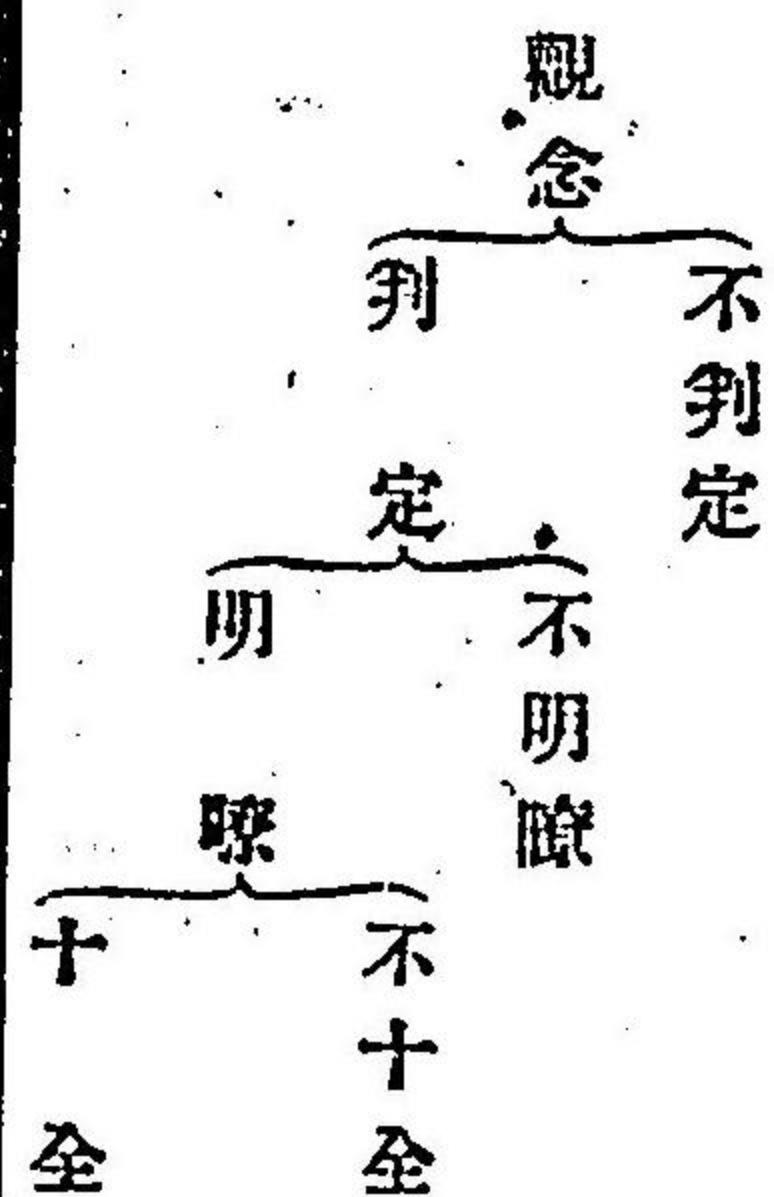 觀念
不判定
判定
不明瞭
明瞭
不十全
十全